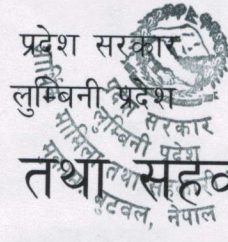 प्रदेश सरकार
लुम्बिनी प्रदेश
तथा सहव
सरकार
लुम्बिनी प्रदेश
तथा
बुटवल, नेपाल